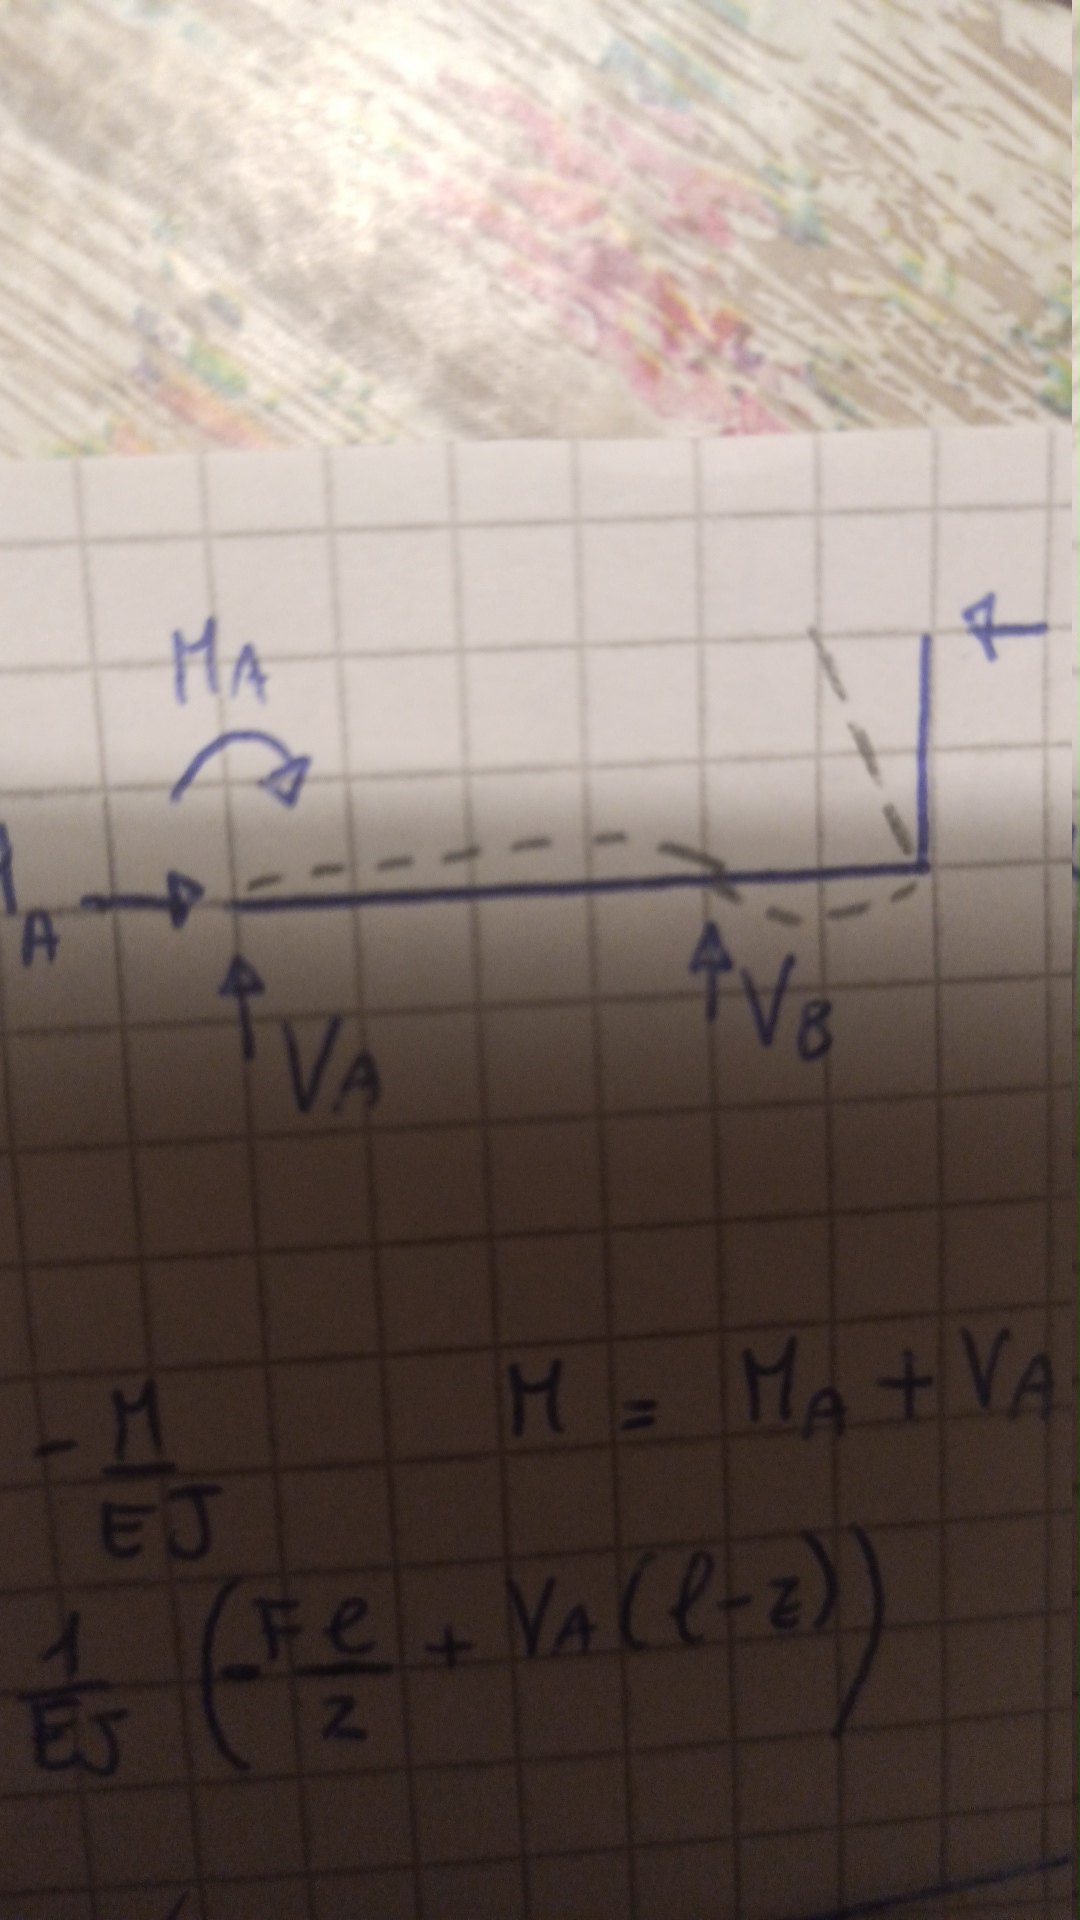 MA
A
VA
VB
- M/EJ M = MA + VA
1/EJ (-Fl/2 + VA(l-z))